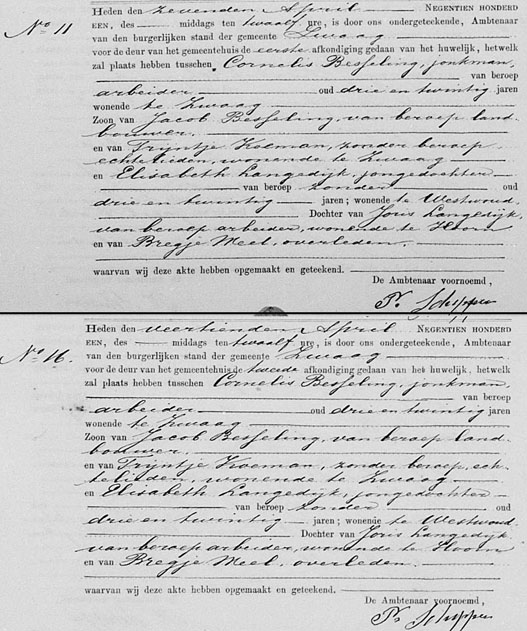 Heden den zevenden April NEGENTIEN HONDERD
No 11
EEN, des middags ten twaalf ure, is door ons ondergeteekende, Ambtenaar
van den burgerlijken stand der gemeente Zwaag
voor de deur van het gemeentehuis de eerste afkondiging gedaan van het huwelijk, hetwelk
zal plaats hebben tusschen Cornelis Besseling, jonkman,
van beroep
arbeider oud drie en twintig jaren
wonende te Zwaag
Zoon van Jacob Besseling, van beroep land-
bouwer.
en van Trijntje Koeman, zonder beroep
echtelieden, wonende te Zwaag
en Elisabeth Langedijk, jongedochter
van beroep zonder oud
drie en twintig jaren; wonende te Westwoud
Dochter van Joris Langedijk,
van beroep arbeider, wonende te Hoorn
en van Bregje Meel, overleden.
waarvan wij deze akte hebben opgemaakt en geteekend.
De Ambtenaar voornoemd,
P. Schipper
Heden den veertienden April NEGENTIEN HONDERD
No 16.
EEN, des middags ten twaalf ure, is door ons ondergeteekende, Ambtenaar
van den burgerlijken stand der gemeente Zwaag
voor de deur van het gemeentehuis de tweede afkondiging gedaan van het huwelijk, hetwelk
zal plaats hebben tusschen Cornelis Besseling, jonkman,
van beroep
arbeider oud drie en twintig jaren
wonende te Zwaag
Zoon van Jacob Besseling, van beroep land-
bouwer
en van Trijntje Koeman, zonder beroep, ech-
telieden, wonende te Zwaag
en Elisabeth Langedijk, jongedochter
van beroep zonder oud
drie en twintig jaren; wonende te Westwoud
Dochter van Joris Langedijk
van beroep arbeider, wonende te Hoorn
en van Bregje Meel, overleden.
waarvan wij deze akte hebben opgemaakt en geteekend.
De Ambtenaar voornoemd,
P. Schipper